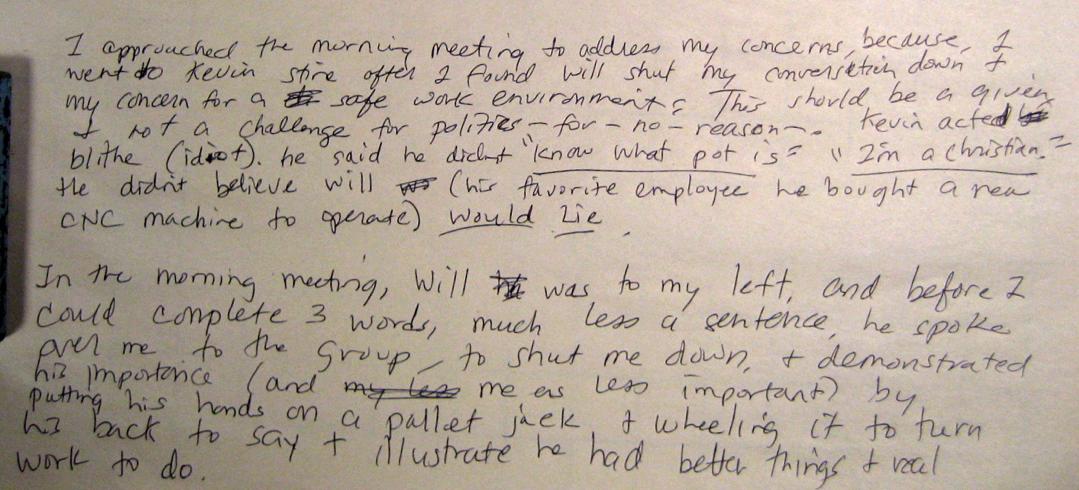 I approached the morning meeting to address my concerns, because, I
went to Kevin stire after I found Will shut my conversation down +
my concern for a safe work environment. This should be a given
+ not a challenge for politics-for-no-reason-. Kevin acted
blithe (idiot). he said he didnt "know what pot is" "Im a christian."
He didn't believe will (his favorite employee he bought a new
CNC machine to operate) would Lie.
In the morning meeting, Will was to my left, and before I
could complete 3 words, much less a sentence, he spoke
over me to the group, to shut me down, + demonstrated
his importance (and me as less important) by
putting his hands on a pallet jack + wheeling it to turn
his back to say + illustrate he had better things + real
work to do.